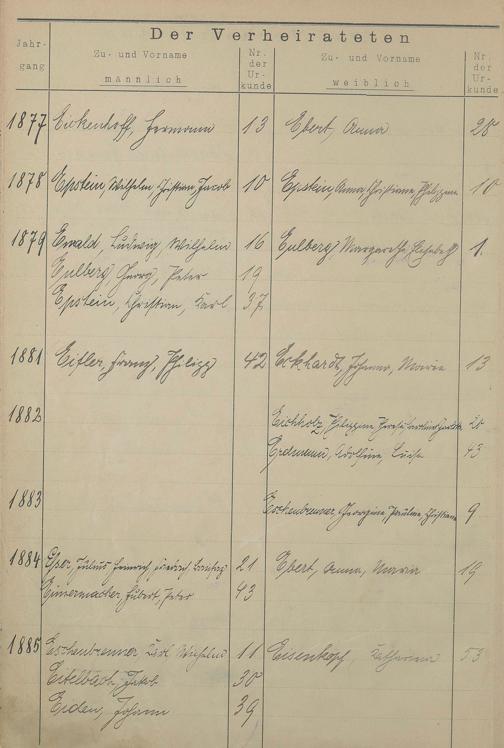 Der Verheirateten
Jahr-
gang
Zu- und Vorname
männlich
Nr.
der
Ur-
kunde
Zu- und Vorname
weiblich
Nr.
der
Ur-
kunde
1877 Eickenhoff, Hermann 13 Ebert, Anna 28
1878 Epstein, Wilhelm, Christian, Jacob 10 Epstein, Anna, Christiane, Philippine 10
1879 Ewald, Ludwig, Wilhelm 16 Eulberg, Margareth, Elisabeth 1.
Eulberg, Georg, Peter 19
Epstein, Christian, Karl 37
1881 Eifler, Franz, Philipp 42 Eckhardt, Johanna, Maria 13
1882 Eichholz, Philippine 20
Erdmann, Adolfine, Luise 43
1883 Eschenbrenner, Georgine, Pauline, Christiane 9
1884 Eser, Julius Heinrich 21 Ebert, Anna, Maria 19
Einermacher, Hubert, Peter 43
1885 Eschenbrenner Karl Wilhelm 11 Eisenkopf, Katharina 53
Eitelbach, Jakob 30
Erden, Johann 39